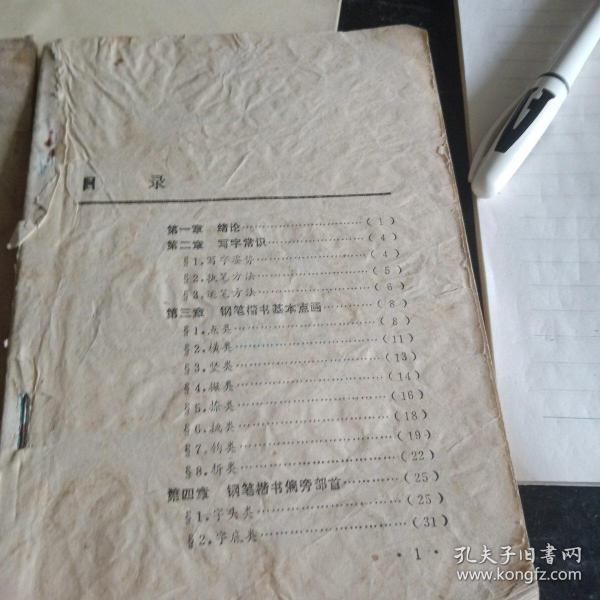 目　录
第一章　绪论……………………(1)
第二章　写字常识………………(4)
§1.写字姿势……………………(4)
§2.执笔方法……………………(5)
§3.运笔方法……………………(6)
第三章　钢笔楷书基本点画……(8)
§1.点类…………………………(8)
§2.横类…………………………(11)
§3.竖类…………………………(13)
§4.撇类…………………………(14)
§5.捺类…………………………(16)
§6.挑类…………………………(18)
§7.钩类…………………………(19)
§8.折类…………………………(22)
第四章　钢笔楷书偏旁部首……(25)
§1.字头类………………………(25)
§2.字底类………………………(31)
·1·
孔夫子旧书网
www.kongfz.com